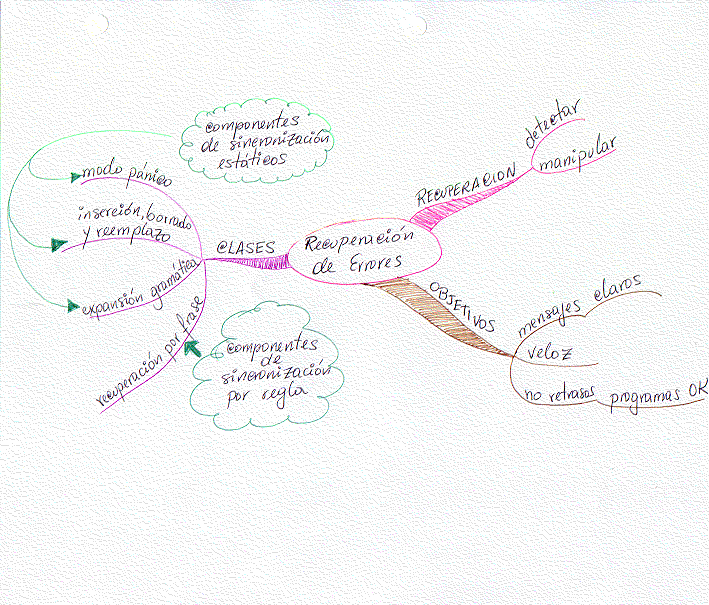 Recuperación
de Errores
RECUPERACION
detectar
manipular
OBJETIVOS
mensajes claros
veloz
no retrasos programas OK
CLASES
modo pánico
inserción, borrado
y reemplazo
expansión gramática
recuperación por frase
componentes
de sincronización
estáticos
componentes
de
sincronización
por regla